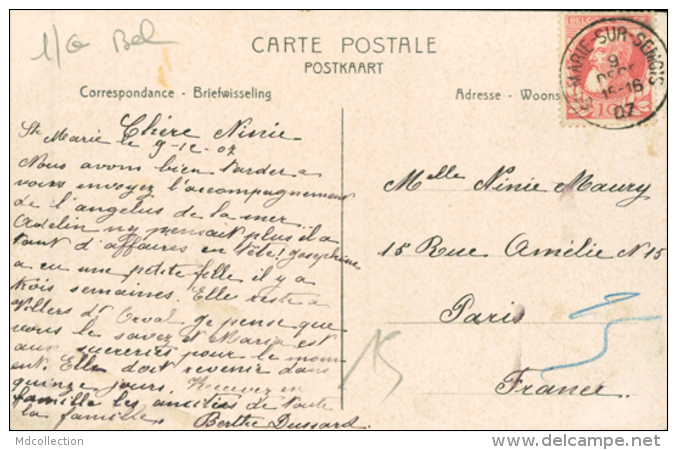 1/a Bel
CARTE POSTALE
POSTKAART
Correspondance - Briefwisseling
Adresse - Woons
BELGIQUE
STE-MARIE-SUR-SEMOIS
9
DECE
15-16
07
10
Chère Ninie
Ste Marie le 9-12-07
Nous avons bien tarder a
vous envoyez l'accompagnement
de l'angelus de la mer
Adelin n'y pensait plus il a
tant d'affaires en tête! Josephine
a eu une petite fille il y a
trois semaines. Elle reste à
Villers dt Orval je pense que
vous le savez et Maria est
aux sucreries pour le mom
ent. Elle doit revenir dans
quinze jours. Recevez en
famille les amitiés de toute
la famille.
Berthe Dussard.
Melle Ninie Maury
15 Rue Amélie N 15
Paris
France.
15
Mdcollection
www.delcampe.net